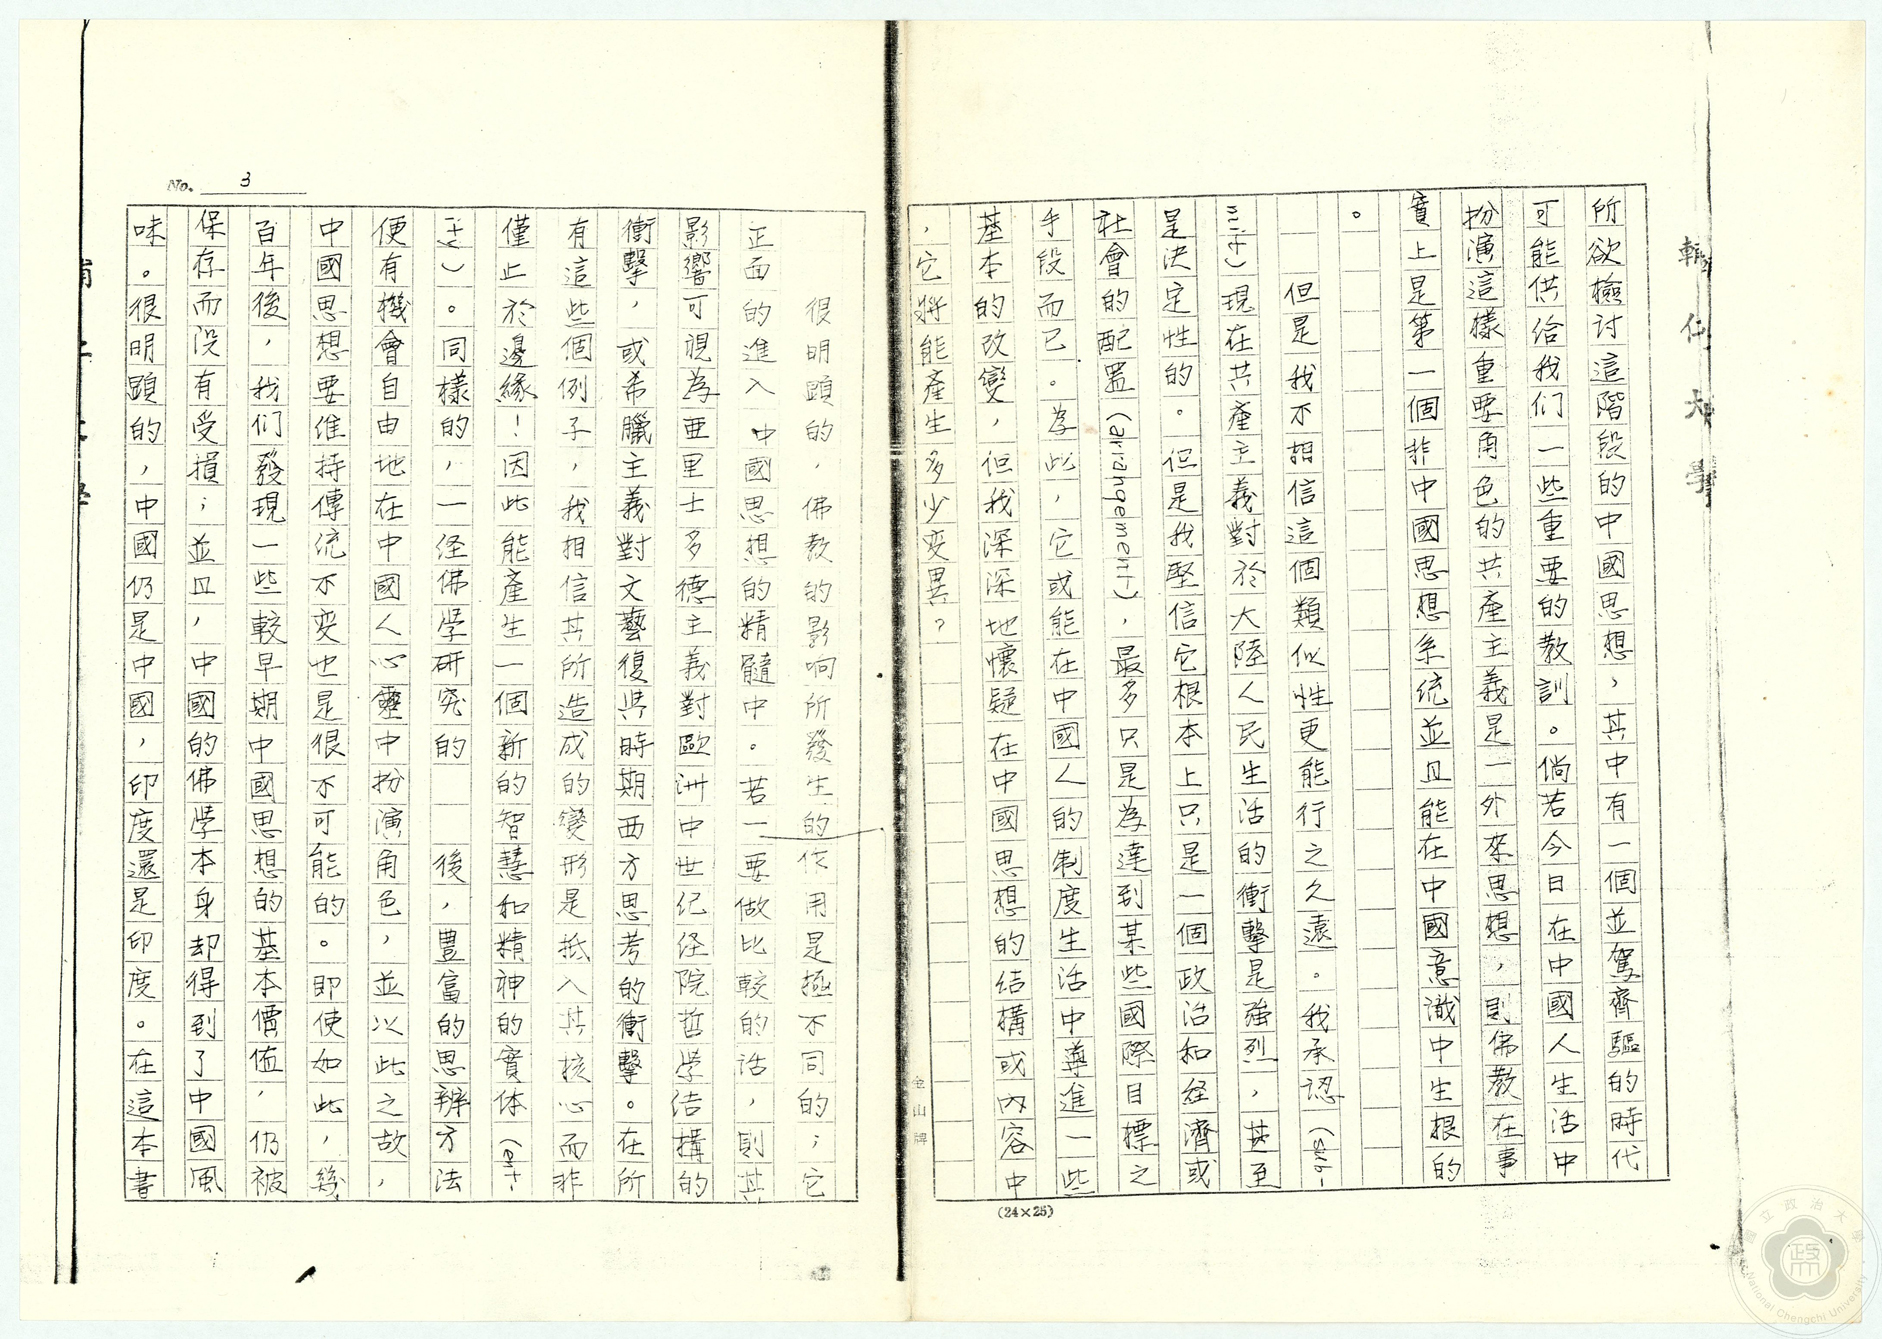 輔仁大學
所欲檢討這階段的中國思想，其中有一個並駕齊驅的時代
可能供給我们一些重要的教訓。倘若今日在中國人生活中
扮演這樣重要角色的共產主義是一外來思想，則佛教在事
實上是第一個非中國思想系統並且能在中國意識中生根的
。
但是我不相信這個類似性更能行之久遠。我承認(sub-
mit)現在共產主義對於大陸人民生活的衝擊是強烈，甚至
是決定性的。但是我堅信它根本上只是一個政治和経濟或
社會的配置(arrangement)，最多只是為達到某些國際目標之
手段而已。為此，它或能在中國人的制度生活中導進一些
基本的改變，但我深深地懷疑在中國思想的结構或內容中
，它將能產生多少变異？
金山牌
(24×25)
No. 3
很明顕的，佛教的影响所發生的作用是極不同的；它
正面的進入中國思想的精髓中。若一要做比較的话，則其
影響可視為亜里士多德主義對歐洲中世纪经院哲学结構的
衝擊，或希臘主義對文藝復兴時期西方思考的衝擊。在所
有這些個例子，我相信其所造成的變形是抵入其核心而非
僅止於邊緣！因此能產生一個新的智慧和精神的實体(ent-
ity)。同樣的，一经佛学研究的 後，豊富的思辨方法
便有機會自由地在中國人心靈中扮演角色，並以此之故，
中國思想要维持傳统不变也是很不可能的。即使如此，幾
百年後，我们發現一些較早期中國思想的基本價值，仍被
保存而没有受損；並且，中國的佛学本身却得到了中國風
味。很明顕的，中國仍是中國，印度還是印度。在這本書
國立政治大學
National Chengchi University